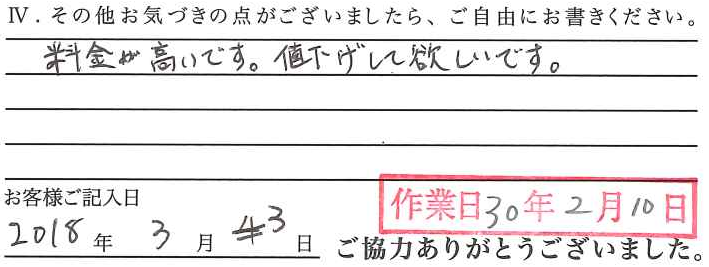 Ⅳ．その他お気づきの点がございましたら、ご自由にお書きください。
料金が高いです。値下げして欲しいです。
お客様ご記入日
作業日30年2月10日
2018年 3月 3日
ご協力ありがとうございました。